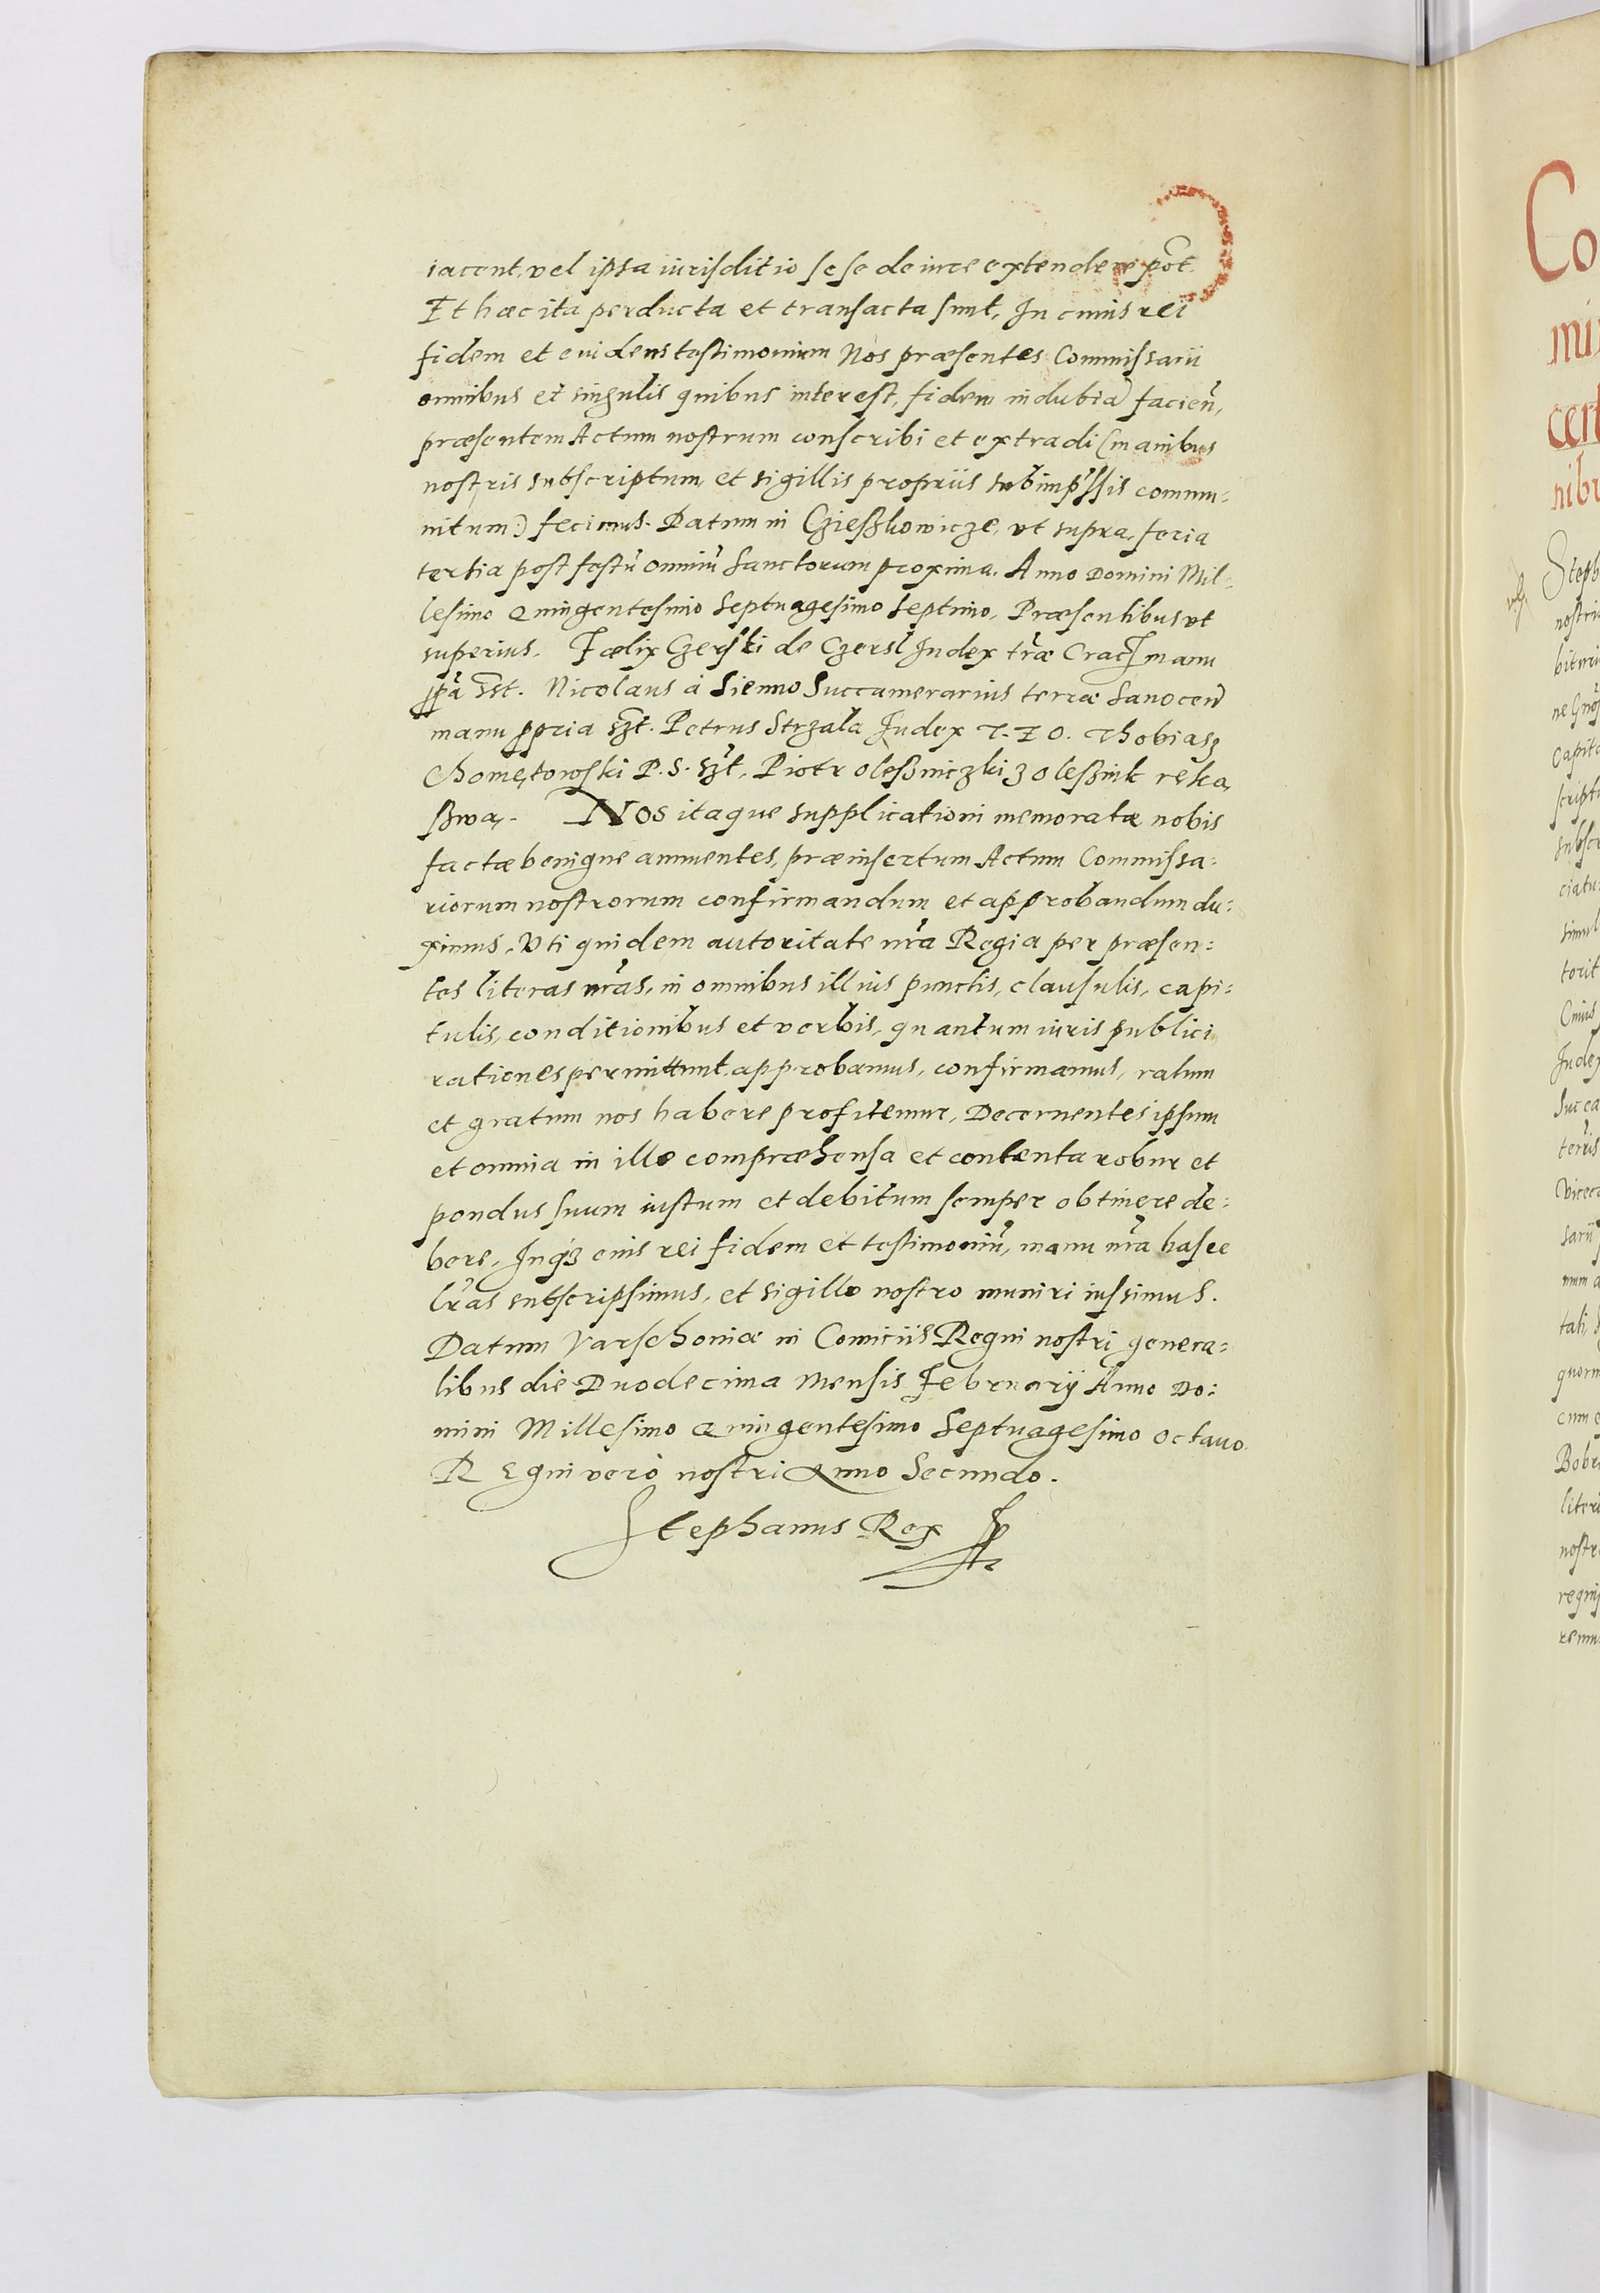 iacent, vel ipsa iurisditio sese de iure extendere pot̃.
Et hæc ita perducta et transacta sunt, In cuius rei
fidem et euidens testimonium Nos præsentes Commissarii
omnibus et singulis quibus interest, fidem indubiã facien̄,
præsentem Actum nostrum conscribi et extradi (manibus
nostris subscriptum et sigillis propriis subimp̄ssis commu-
nitum) fecimus. Datum in Czieszkowicze, vt supra, feria
tertia post festū omniū Sanctorum proxima. Anno Domini Mil-
lesimo Quingentesimo Septuagesimo Septimo, Præsentibus vt
superius. Fælix Czerski de Czersl Iudex tr̃æ Crac manu
ppã sst. Nicolaus á Sienno Succamerarius terræ Sanocen̄
manu ppria szt. Petrus Strzala Judex T. Z O. Thobiasz
Chomętowski P. S. szt, Piotr Olessniczki z Olessnik ręką
sswą. Nos itaque supplicationi memoratæ nobis
factæ benigne annuentes, præinsertum Actum Commissa-
riorum nostrorum confirmandum et approbandum du-
ximus, Vti quidem autoritate nr̃a Regia per præsen-
tes literas nr̃as, in omnibus illius punctis, clausulis, capi-
tulis, conditionibus et verbis, quantum iuris publici
rationes permittunt, approbamus, confirmamus, ratum
et gratum nos habere profitemur, Decernentes ipsum
et omnia in illo compræhensa et contenta robur et
pondus suum iustum et debitum semper obtinere de-
bere, Inqȝ eius rei fidem et testimoniũ, manu nr̃a hasce
lr̃as subscripsimus, et sigillo nostro muniri iussimus.
Datum Varschouiæ in Comiciis Regni nostri genera-
libus die Duodecima Mensis Februarij Anno Do-
mini Millesimo Quingentesimo Septuagesimo Octauo
Regni verò nostri Anno Secundo.
Stephanus Rex
Co
cert
nibu
Steph
nostri
ne Gnos
Capita
Cuius
Iudex
Succa
Bobr